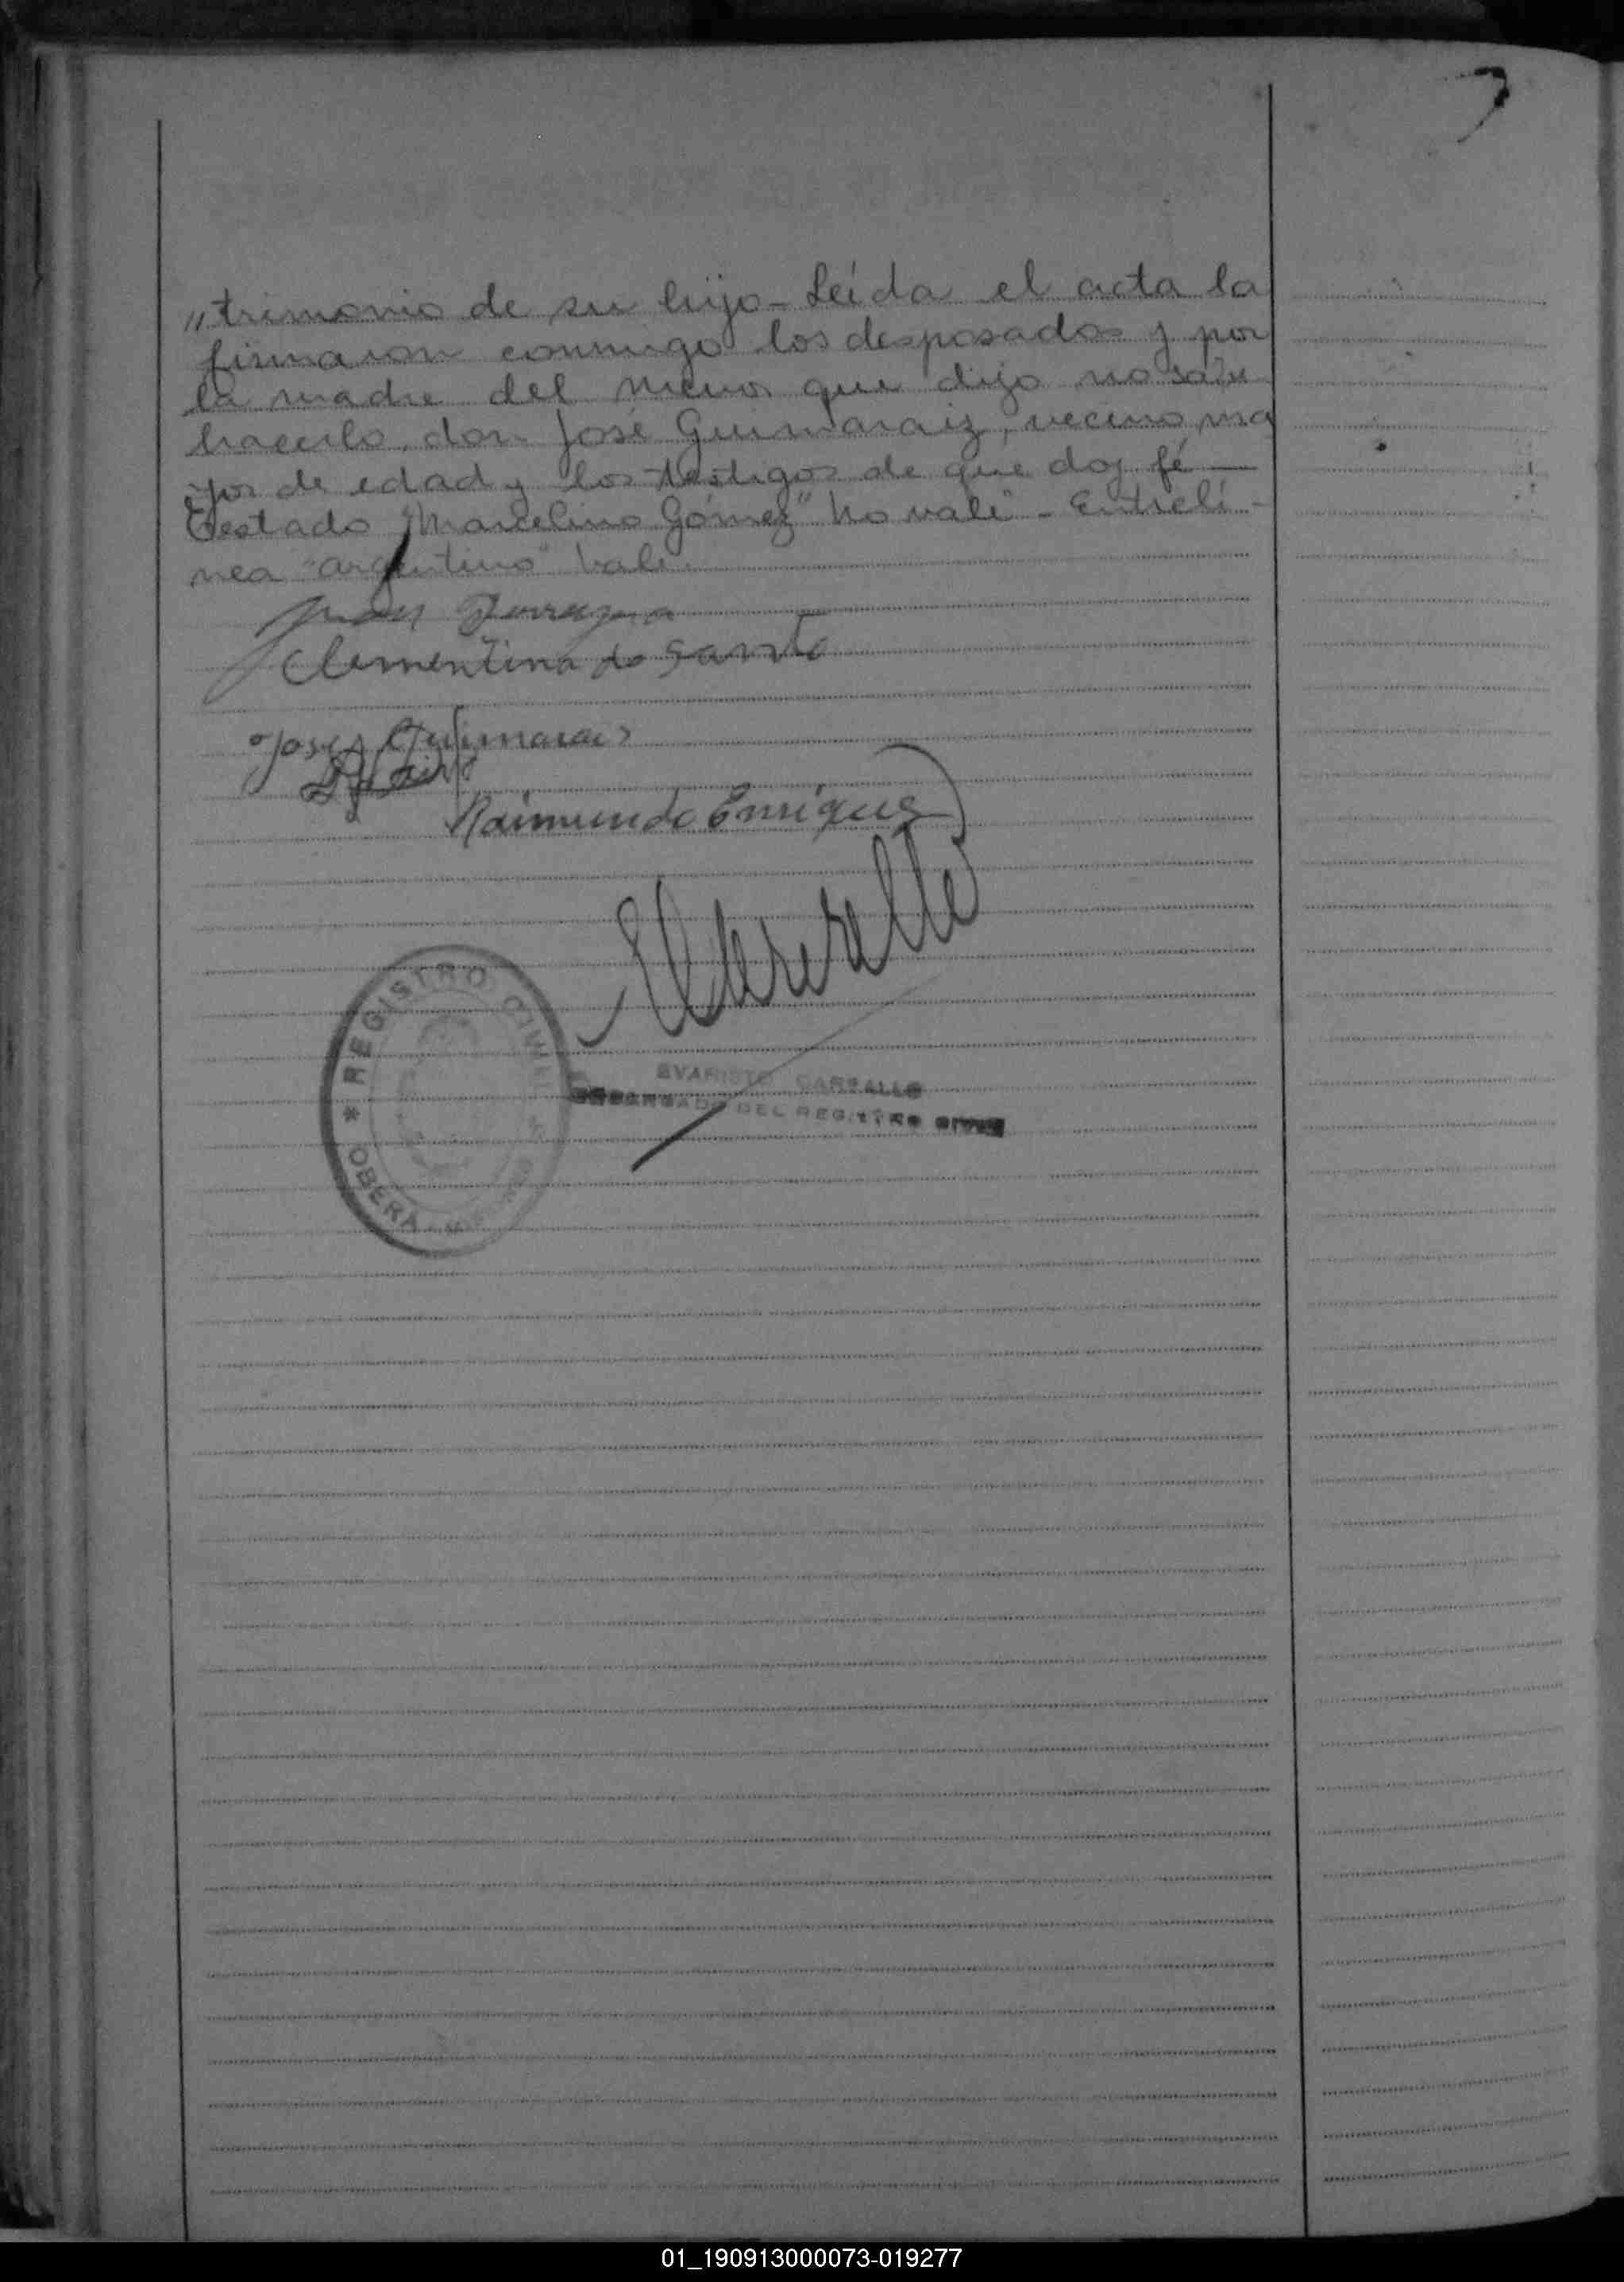 "trimonio de su hijo - Leída el acta la
firmaron conmigo los desposados y por
la madre del menor que dijo no saber
hacerlo, don José Guimaraiz, vecino, ma
yor de edad y los testigos de que doy fé —
Testado "Marcelino Gómez" No vale - Entrelí-
nea "argentino" Vale.
Juan
Clementina do Santo
José Guimaraes
Raimundo Enrique
REGISTRO CIVIL
* OBERA
EVARISTO CARBALLO
ENCARGADO DEL REGISTRO CIVIL
01_190913000073-019277